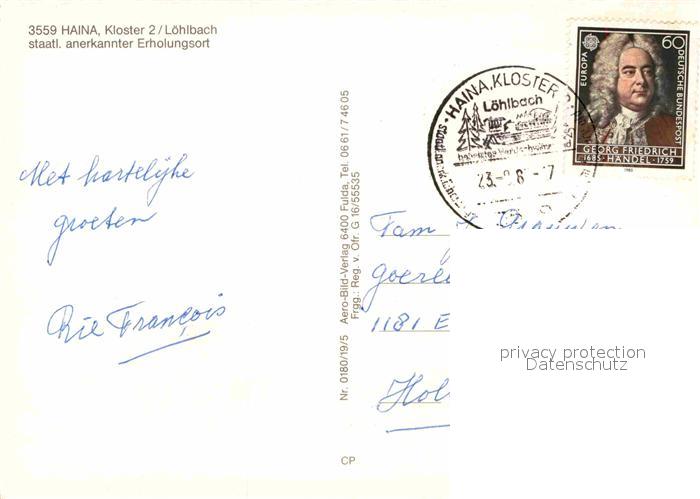 3559 HAINA, Kloster 2 / Löhlbach
staatl. anerkannter Erholungsort
Met hartelijke
groeten
Rie François
Nr. 0180/19/5 Aero-Bild-Verlag 6400 Fulda, Tel. 06 61 / 7 46 05
Frgg.: Reg. v. Ofr. G 16/55535
CP
HAINA, KLOSTER
Löhlbach
23.-9.8
EUROPA
60
DEUTSCHE BUNDESPOST
GEORG FRIEDRICH
1685 · HÄNDEL · 1759
1985
Fam
1181 E
Hol
privacy protection
Datenschutz